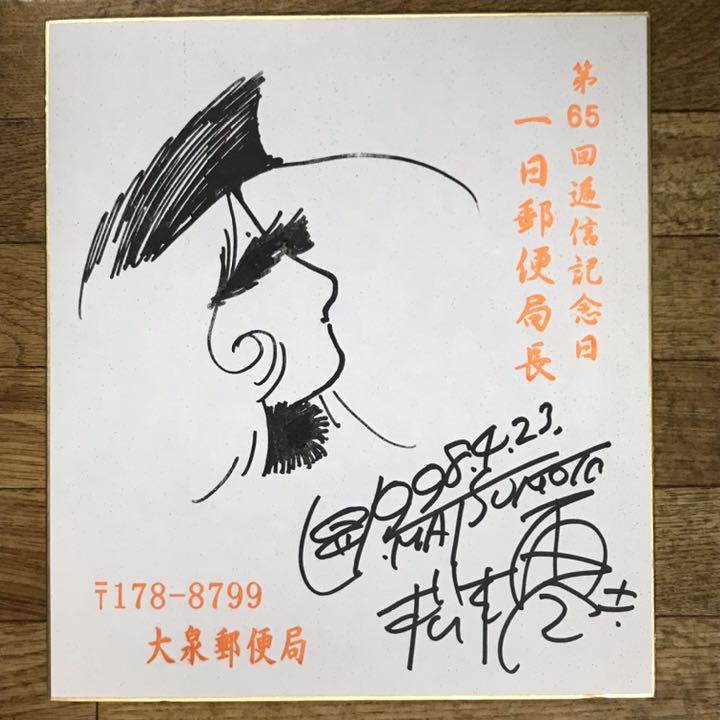 第65回逓信記念日
一日郵便局長
1998.4.23.
MATSUMOTO
松本零士
〒178-8799
大泉郵便局